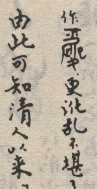 作。更淆乱不堪了
由此可知清人以来